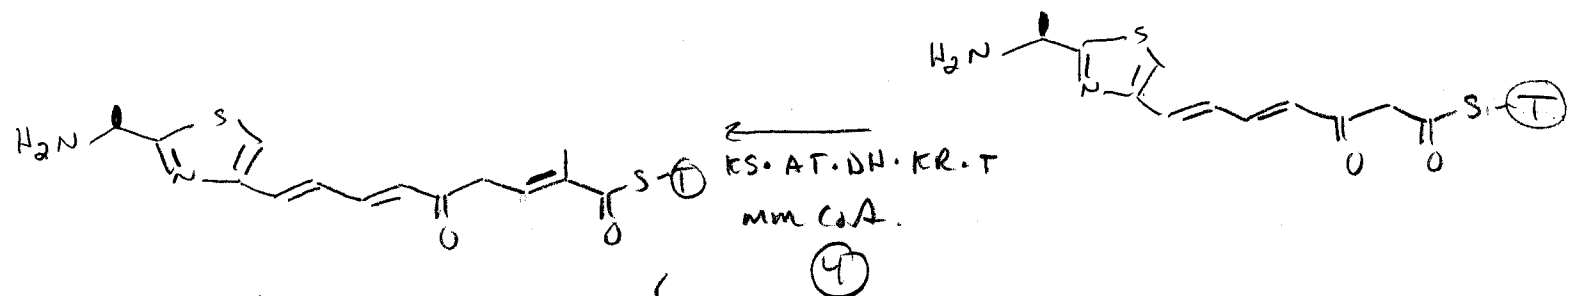 H₂N S N O O S T
KS·AT·DH·KR·T
mm CoA.
4
H₂N S N O O S T